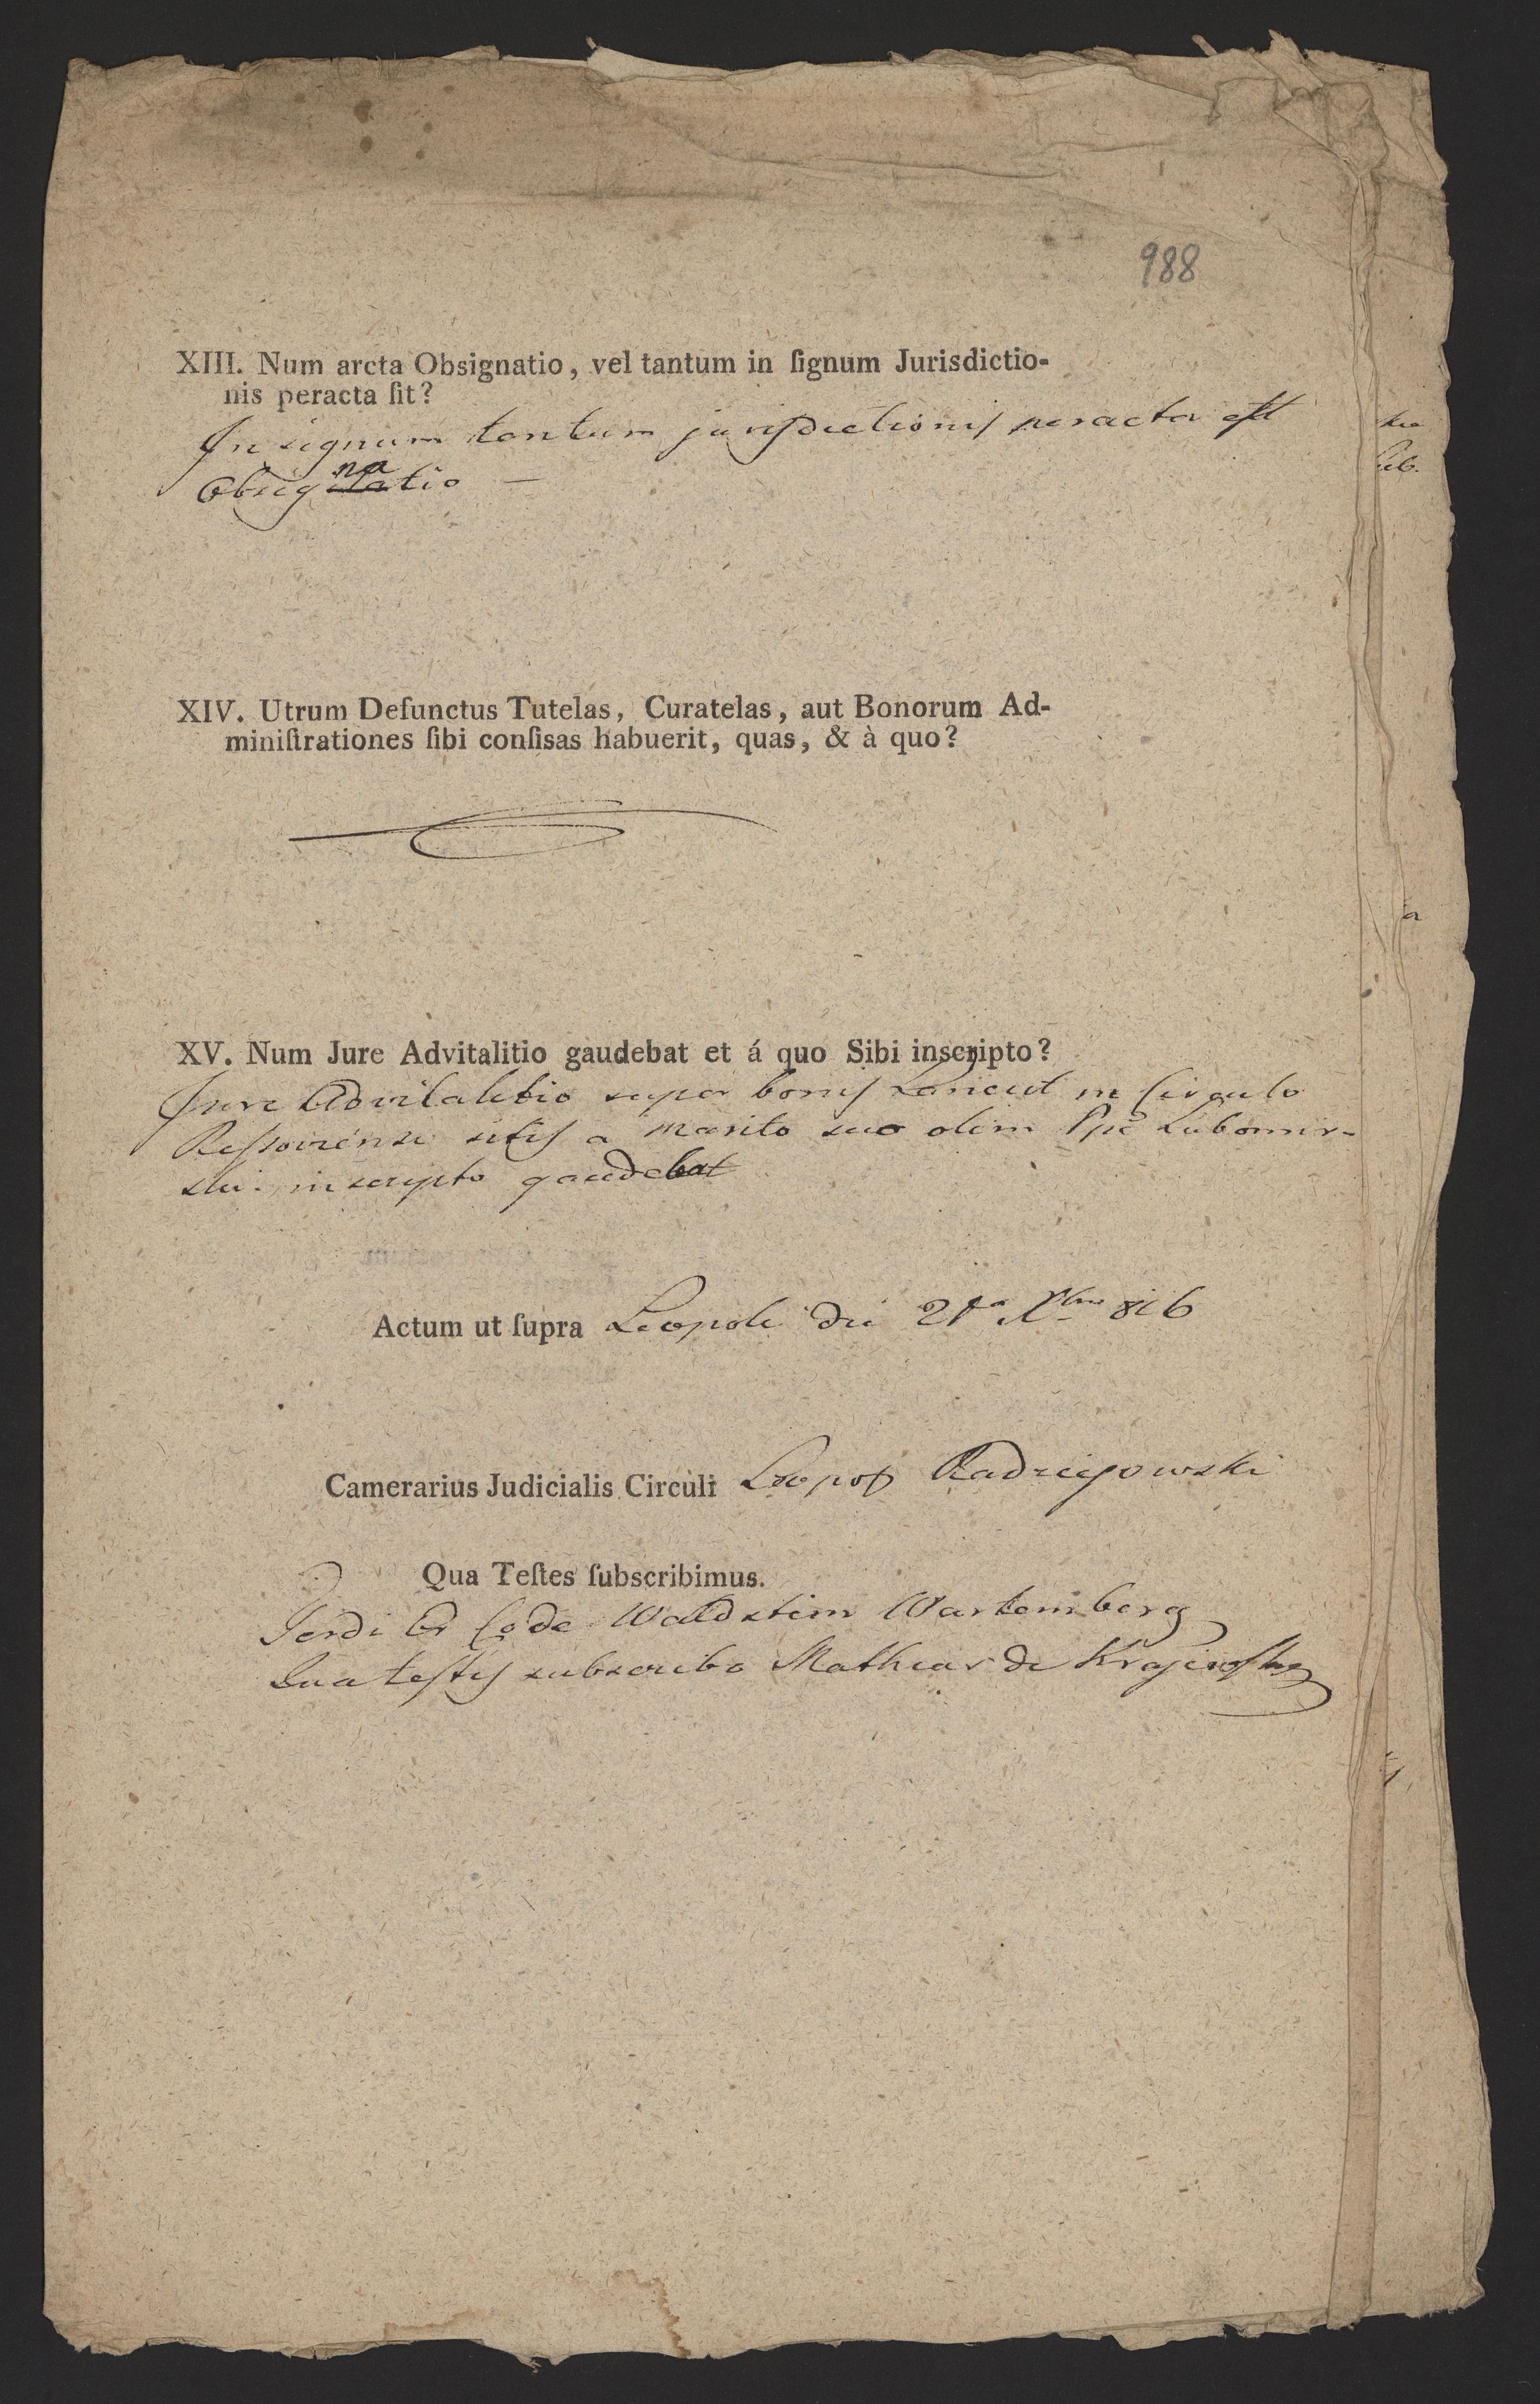 988
XIII. Num arcta Obsignatio, vel tantum in ſignum Jurisdictio-
nis peracta ſit?
In signum tantum jurisdictionis peracta est
Obsignatio —
XIV. Utrum Defunctus Tutelas, Curatelas, aut Bonorum Ad-
miniſtrationes ſibi confisas habuerit, quas, & à quo?
XV. Num Jure Advitalitio gaudebat et á quo Sibi inscripto?
Jure Advitalitio super bonis Lancut in Circulo
Ressoviensi sitis a marito suo olim Ppe Lubomir-
ski inscripto gaudebat
Actum ut ſupra Leopoli die 21a Xbris 816
Camerarius Judicialis Circuli Leopol Radziejowski
Qua Teſtes ſubscribimus.
Ferdi Gr Co de Waldstein Wartemberg
Qua testis subscribo Mathias de Krajewski